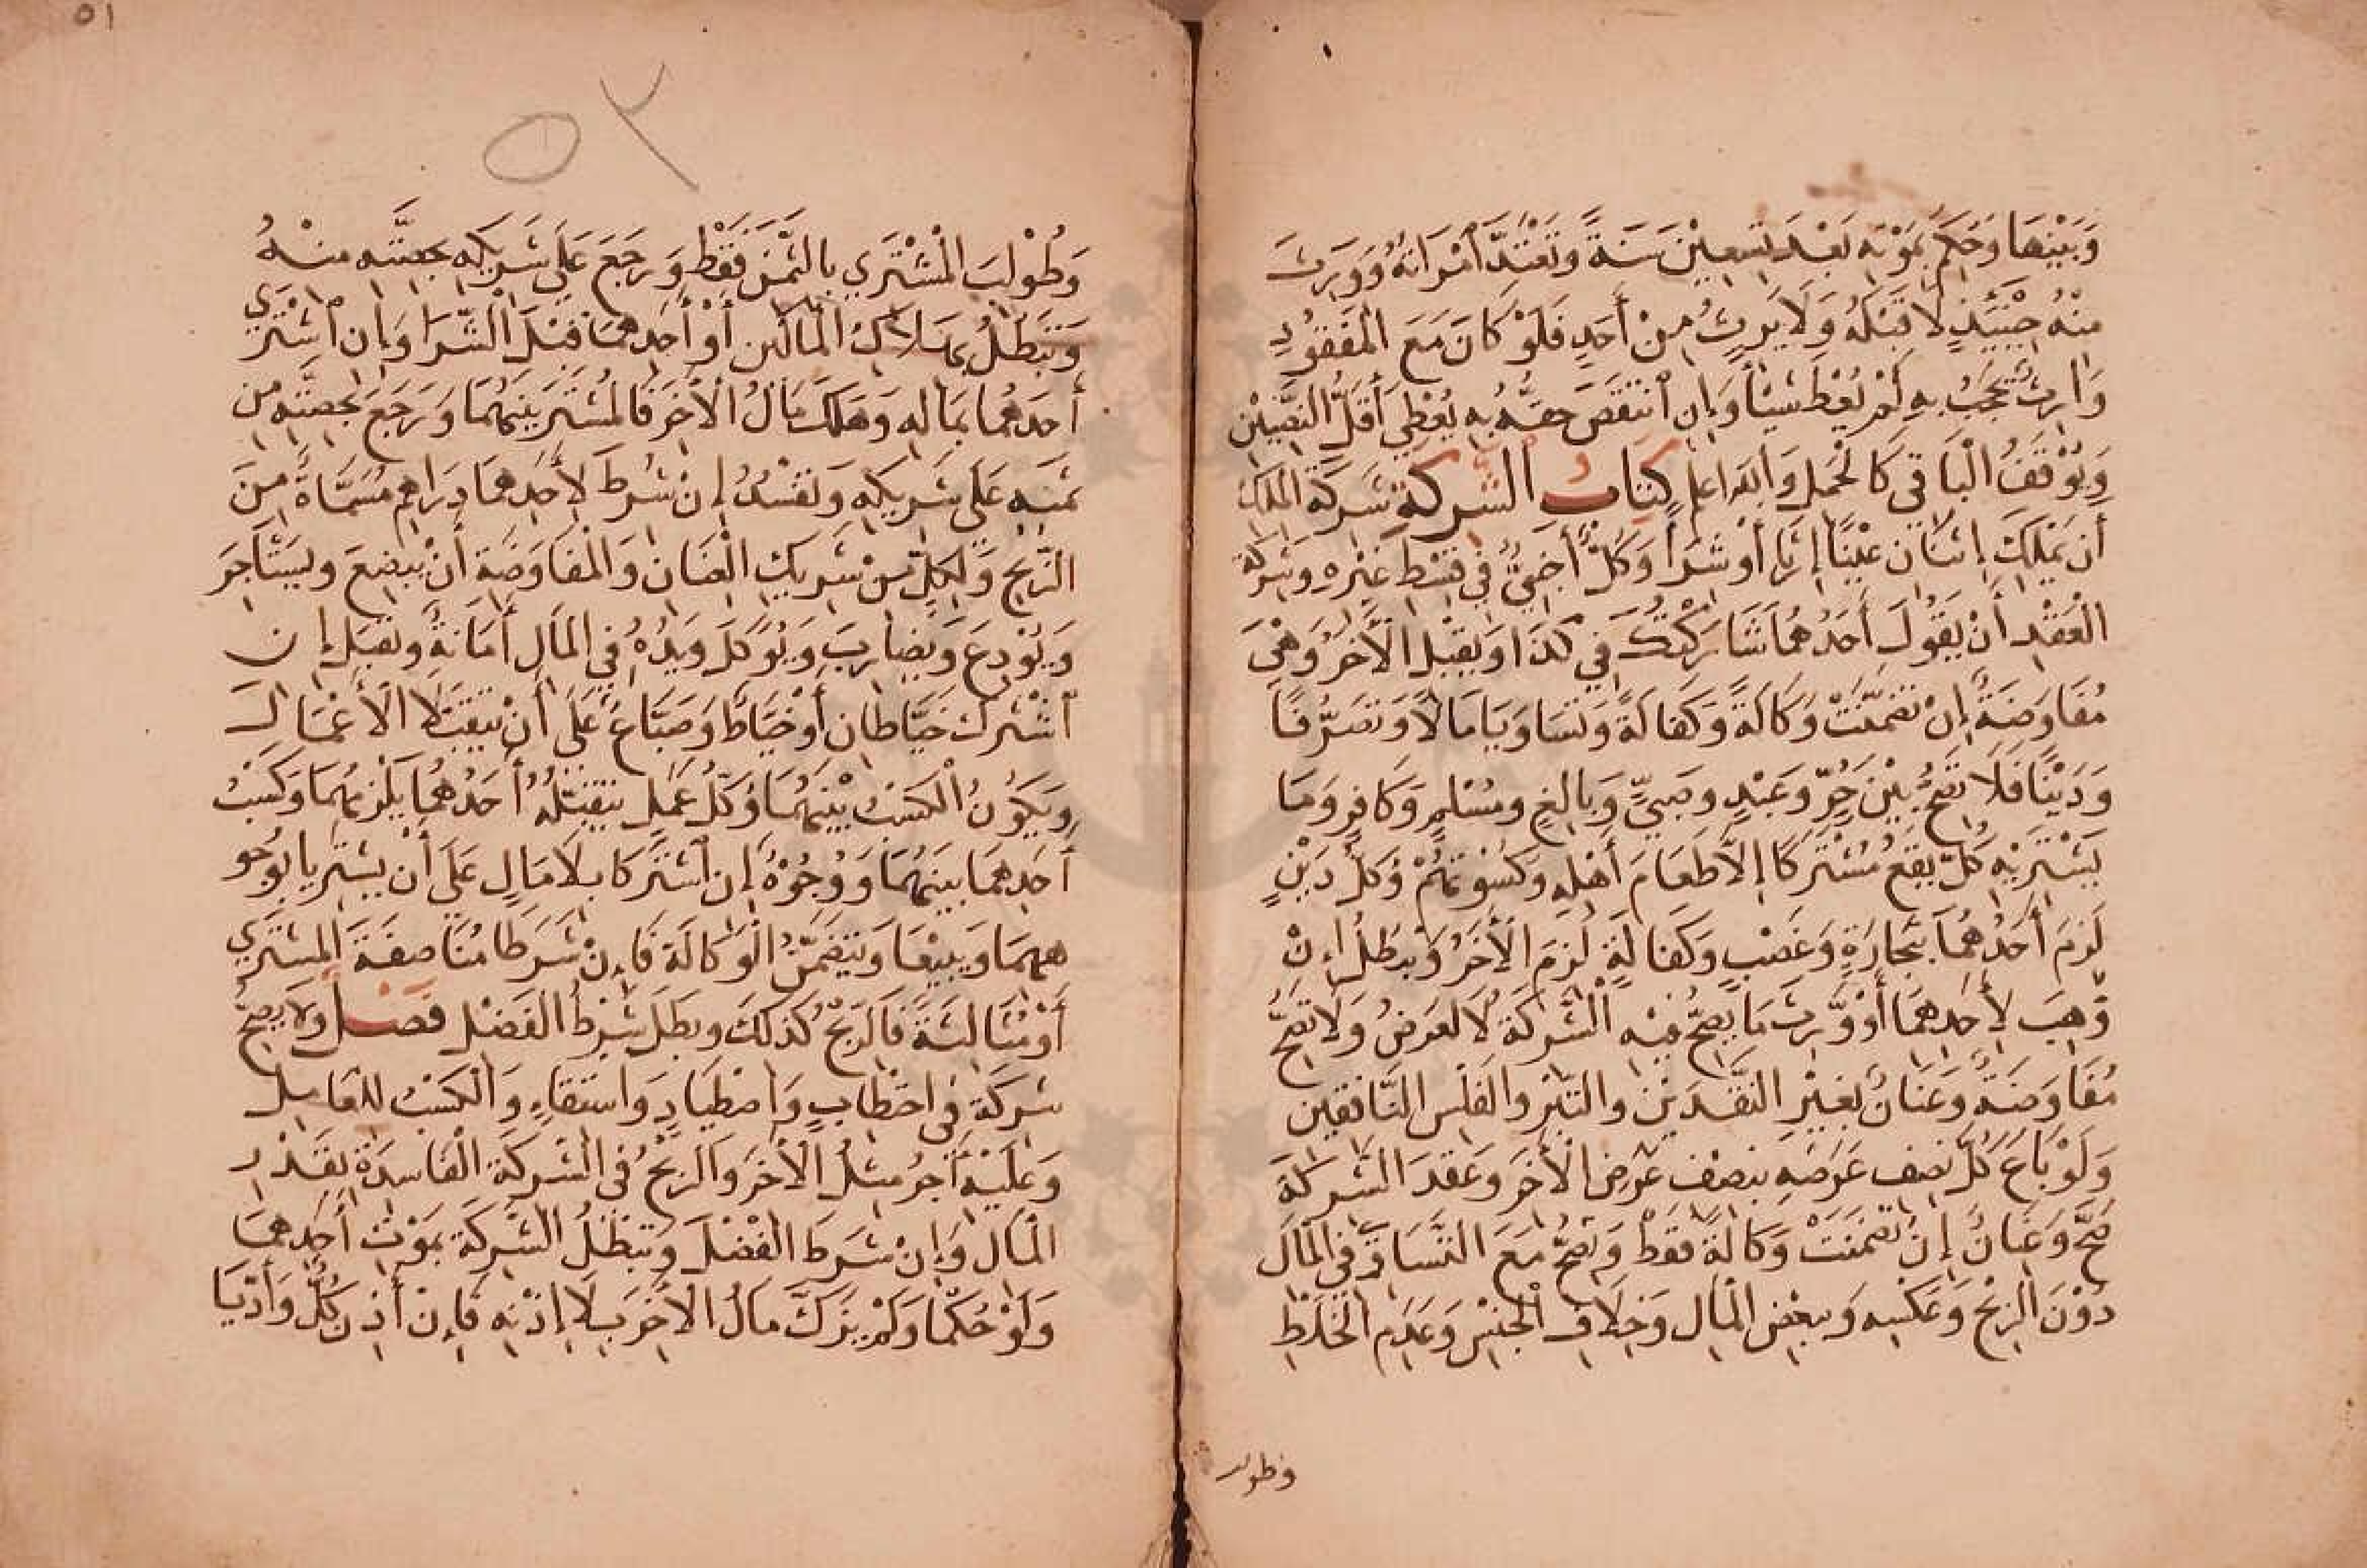 وَبَيْنَهَا وَحُكِمَ بِمَوْتِهِ بَعْدَ تِسْعِيْنَ سَنَةً وَتَعْتَدُّ اَمْرَاتُهُ وَوَرِثَ
مِنْهُ حِيْنَئِذٍ لَا قَبْلَهُ وَلَا يَرِثُ مِنْ أَحَدٍ فَلَوْ كَانَ مَعَ الْمَفْقُوْدِ
وَارِثٌ يُحْجَبُ بِهِ لَمْ يُعْطَ شَيْئاً وَإِنِ انْتَقَصَ حَقُّهُ بِهِ يُعْطِي أَقَلَّ النَّصِيْبَيْنِ
وَيُوْقَفُ الْبَاقِي كَالْحَمْلِ وَاَللّٰه اعلم كِتَابُ الشَّرِكَةِ شَرِكَةُ الْمِلْكِ
أَنْ يَمْلِكَ إِثْنَانِ عَيْنًا إِرْثًا أَوْ شِرَاً وَكُلٌّ أَجْنَبِيٌّ فِي قِسْطِ غَيْرِهِ وَشَرِكَةُ
الْعَقْدِ أَنْ يَقُوْلَ أَحَدُهُمَا شَارَكْتُكَ فِي كَذَا وَيَقْبَلَ الْآخَرُ وَهْيَ
مُفَاوَضَةٌ إِنْ تَضَمَّنَتْ وَكَالَةً وَكَفَالَةً وَتَسَاوَيَا مَالًا وَتَصَرُّفًا
وَدَيْنًا فَلَا تَصِحُّ بَيْنَ حُرٍّ وَعَبْدٍ وَصَبِيٍّ وَبَالِغٍ وَمُسْلِمٍ وَكَافِرٍ وَمَا
يَشْتَرِيْهِ كُلٌّ يَقَعُ مُشْتَرَكًا إِلَّا طَعَامَ أَهْلِهِ وَكُسْوَتَهُمْ وَكُلُّ دَيْنٍ
لَزِمَ أَحَدَهُمَا بِتِجَارَةٍ وَغَصْبٍ وَكَفَالَةٍ لَزِمَ الْأَخَرُ وَتَبْطُلُ إِنْ
وُهِبَ لِأَحَدِهِمَا أَوْ وَرِثَ مَا يَصِحُّ فِيْهِ الْشَّرِكَةُ لَا الْعَرَضُ وَلَا تَصِحُّ
مُفَاوَضَةٌ وَعَنَانٌ بِغَيْرِ النَّقْدَيْنِ وَالتِّبْرِ وَالْفَلْسِ النَّافِقَيْنِ
وَلَوْ بَاعَ كُلٌّ نِصْفَ عَرَضِهِ بِنِصْفِ عَرَضِ الْأَخَرِ وَعَقَدَ الشَّرِكَةَ
صَحَّ وَعَنَانٌ إِنْ تَضَمَّنَتْ وَكَالَةً فَقَطْ وَتَصِحُّ مَعَ التَّسَاوِي فِي الْمَالِ
دُوْنَ الرِّبْحِ وَعَكْسِهِ وَبِبَعْضِ الْمَالِ وَخِلَافِ الْجِنْسِ وَعَدَمِ الْخَلْطِ
وطولب
٥١
٥٢
وَطُوْلِبَ الْمُشْتَرِي بِالثَّمَنِ فَقَطْ وَرَجَعَ عَلَى شَرِيكِهِ بِحِصَّتِهِ مِنْهُ
وَتَبْطُلُ بِهَلَاكِ الْمَالَيْنِ أَوْ أَحَدِهِمَا قَبْلَ الْشِّرَا وَإِنِ اشْتَرَي
أَحَدُهُمَا بِمَالِهِ وَهَلَكَ مَالُ الْآخَرِ فَالْمُشْتَرَي بَيْنَهُمَا وَرَجَعَ بِحِصَّتِهِ مِن
ثَمَنِهِ عَلَى شَرِيكِهِ وَتَفْسُدُ إِنْ شُرِطَ لِأَحَدِهِمَا دَرَاهِمُ مُسَمَّاةٌ مِنَ
الرِّبْحِ وَلِكُلٍّ مِنْ شَرِيكِ الْعَنَانِ وَالْمُفَاوَضَةِ أَنْ يُبْضِعَ وَيَسْتَأْجِرَ
وَيُوْدِعَ وَيُضَارِبَ وَيُوَكِّلَ وَيَدُهُ فِي الْمَالِ أَمَانَةٌ وَتَقَبُّلٌ إِنِ
اَشْتَرَكَ خَيَّاطَانِ أَوْ خَيَّاطٌ وَصَبَّاغٌ عَلَى أَنْ يَتَقَبَّلَا الْأَعْمَالَ
وَيَكُوْنُ الْكَسْبُ بَيْنَهُمَا وَكُلُّ عَمَلٍ يَتَقَبَّلُهُ أَحَدُهُمَا يَلْزَمُهُمَا وَكَسْبُ
أَحَدِهِمَا بَيْنَهُمَا وَوُجُوْهٌ إِنِ اَشْتَرَكَا بِلَا مَالٍ عَلَى أَنْ يَشْتَرِيَا بِوُجُو
هِهِمَا وَيَبِيْعَا وَتَتَضَمَّنُ الْوَكَالَةَ فَإِنْ شَرَطَا مُنَاصَفَةَ الْمُشْتَرَي
أَوْ مُثَالَثَةً فَالرِّبْحُ كَذَلِكَ وَبَطَلَ شَرْطُ الْفَضْلِ فَصْلٌ وَلَا يَصِحُّ
شَرِكَةٌ فِي احْتِطَابٍ وَاصْطِيَادٍ وَاسْتِقَاءٍ وَالْكَسْبُ لِلْعَامِلِ
وَعَلَيْهِ أَجْرُ مِثْلِ الْأَخَرِ وَالرِّبْحُ فِي الشَّرِكَةِ الْفَاسِدَةِ بِقَدْرِ
الْمَالِ وَإِنْ شَرَطَ الْفَضْلَ وَتَبْطُلُ الشَّرِكَةُ بِمَوْتِ أَحَدِهِمَا
وَلَوْ حُكْمًا وَلَمْ يُزَكِّ مَالَ الْأَخَرِ بِلَا إِذْنِهِ فَإِنْ أَذِنَ كُلٌّ وَأَدَّيَا